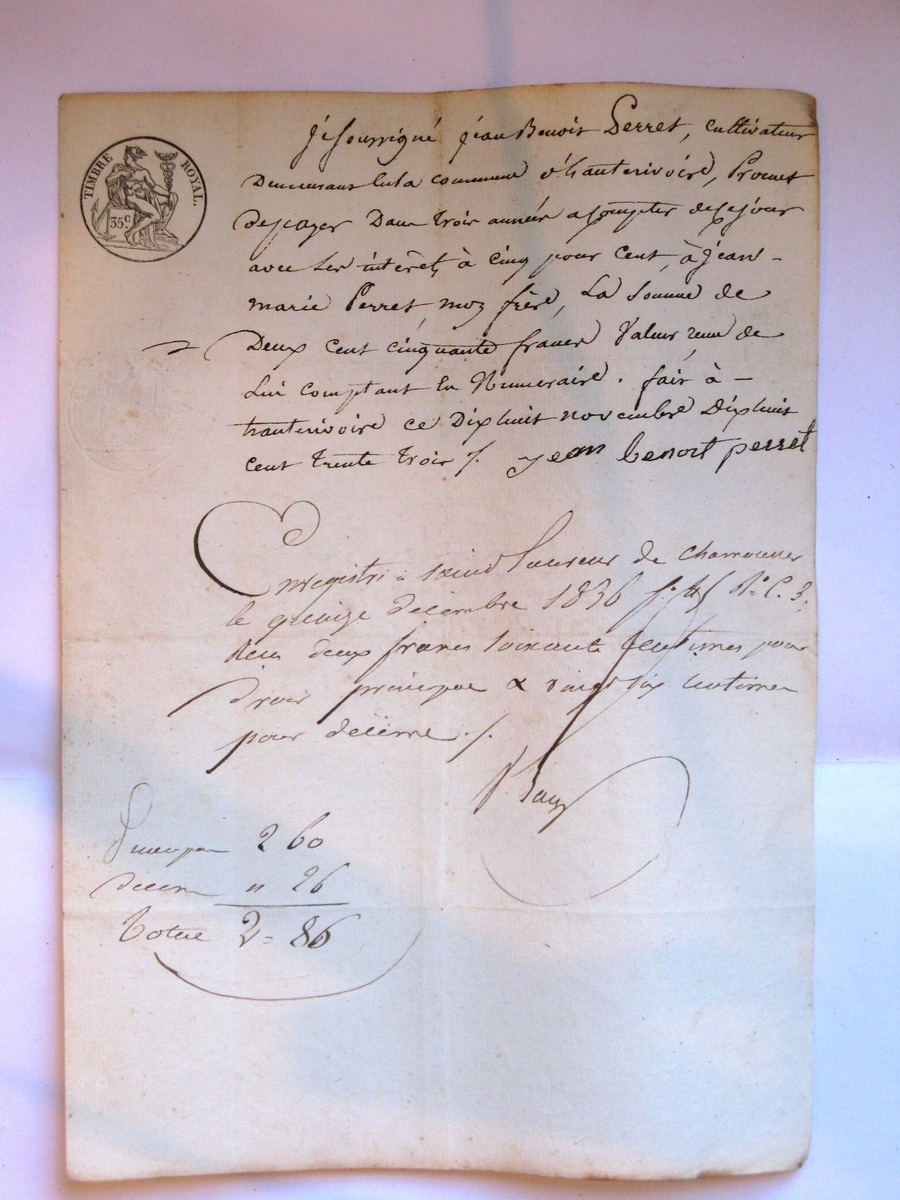 TIMBRE ROYAL.
35c
Je soussigné jean Benoit Perret, cultivateur
Demeurant en la commune d'hauterivoire, Promet
de payer Dans trois année a compter de ce jour
avec les intérêt, à cinq pour cent, à jean -
marie Perret, mon frère, La Somme de
Deux cent cinquante francs Valeur reçu de
Lui comptant en Numeraire. fait à -
hauterivoire ce Dixhuit novembre Dixhuit
cent trente trois /. jean benoit perret
Enregistré à saint Laurent de chamousset
le quinze décembre 1836 f° R° C. 3.
Reçu deux francs soixante centimes pour
droit principal & vingt six centimes
pour décime ./.
Principal 2 60
décime " 26
Total 2 = 86